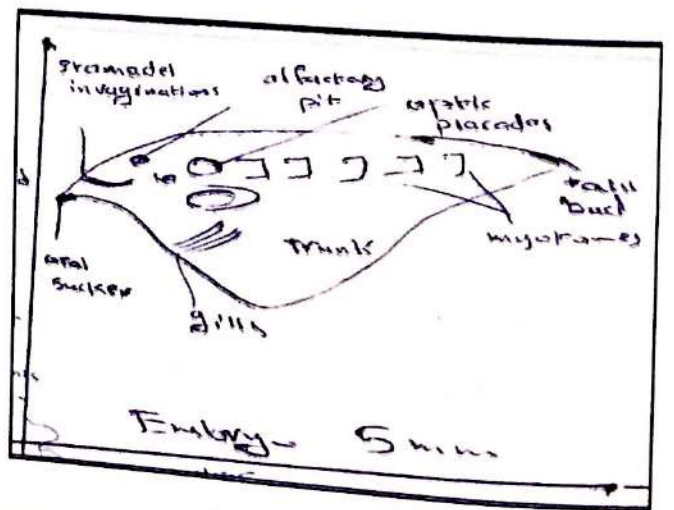 invaginations
olfactory
pit
optic
placodes
tail
bud
myotomes
oral
sucker
Trunk
gills
Embryo 5 mm